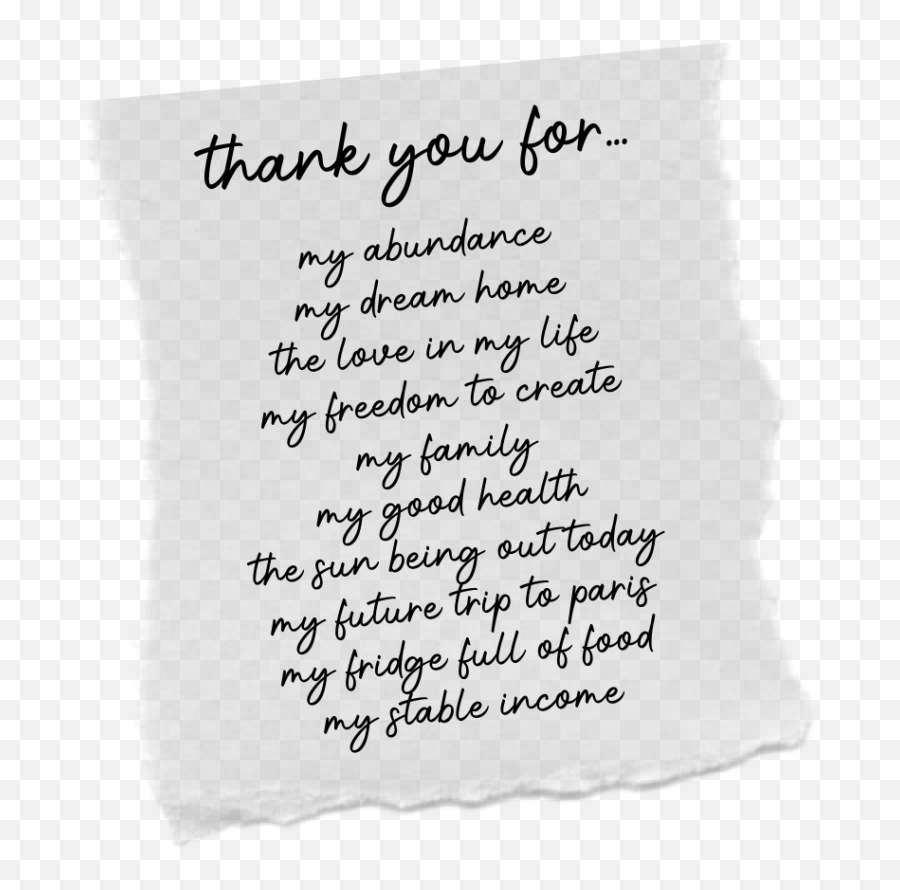 thank you for...
my abundance
my dream home
the love in my life
my freedom to create
my family
my good health
the sun being out today
my future trip to paris
my fridge full of food
my stable income